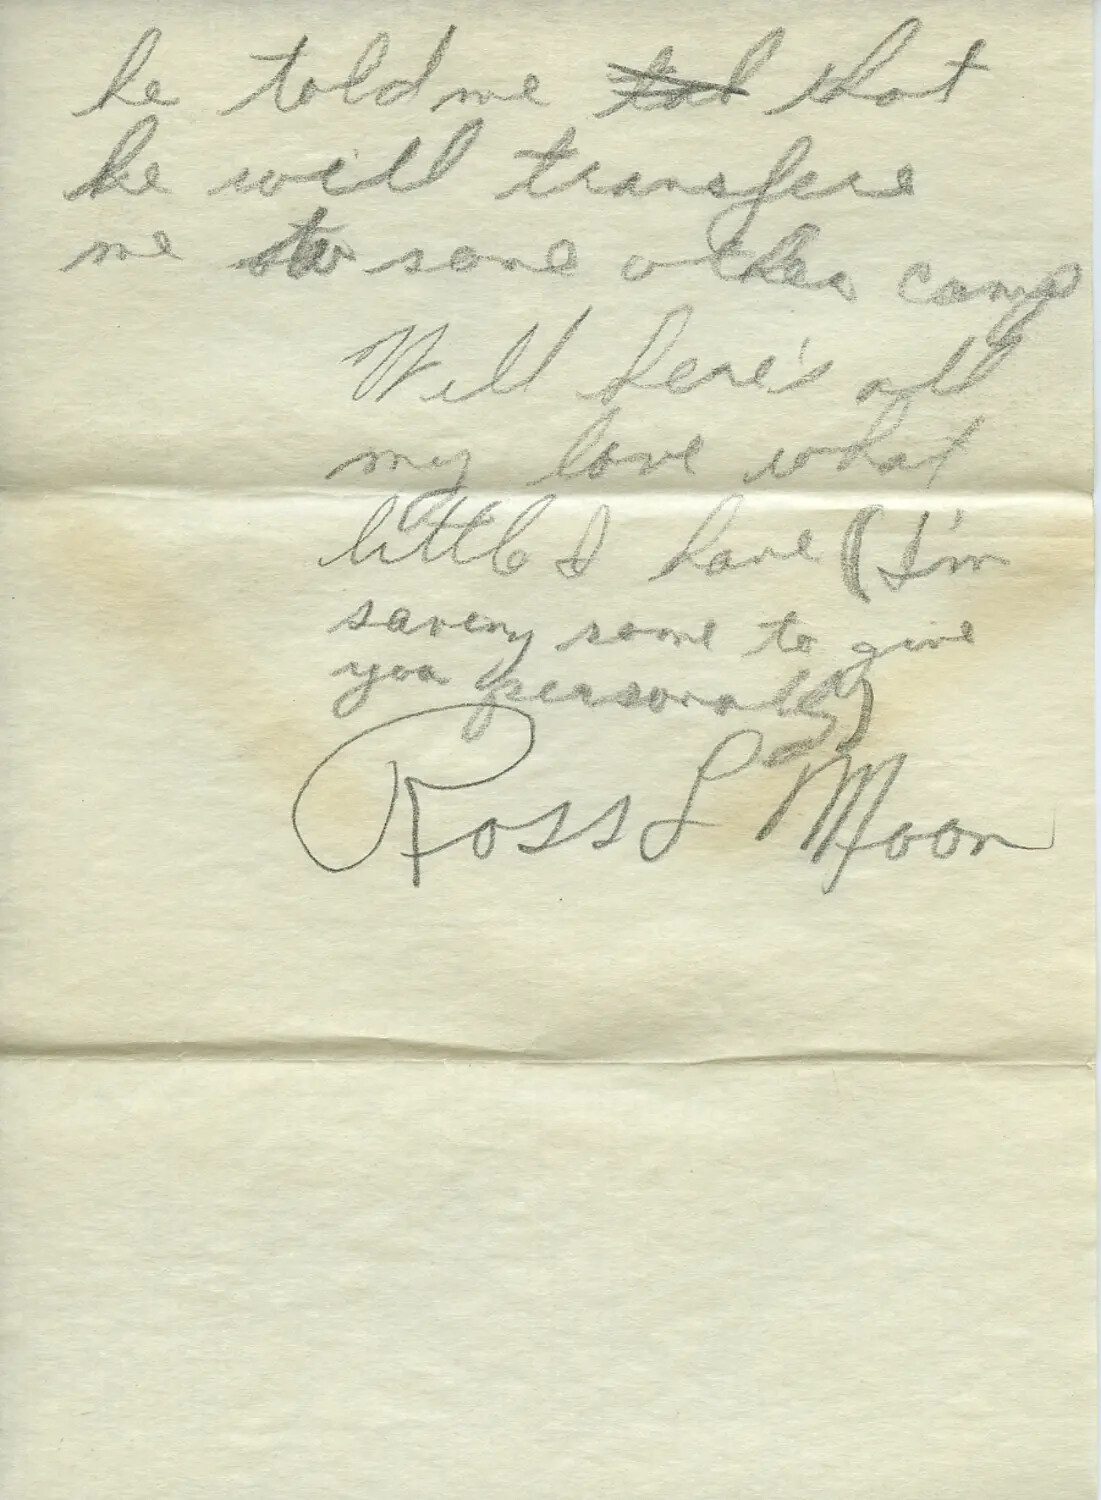 he told me that
he will transfere
me to some other camp
Well here's all
my love what
little I have (I'm
saveny some to give
you personally)
Ross L Moon